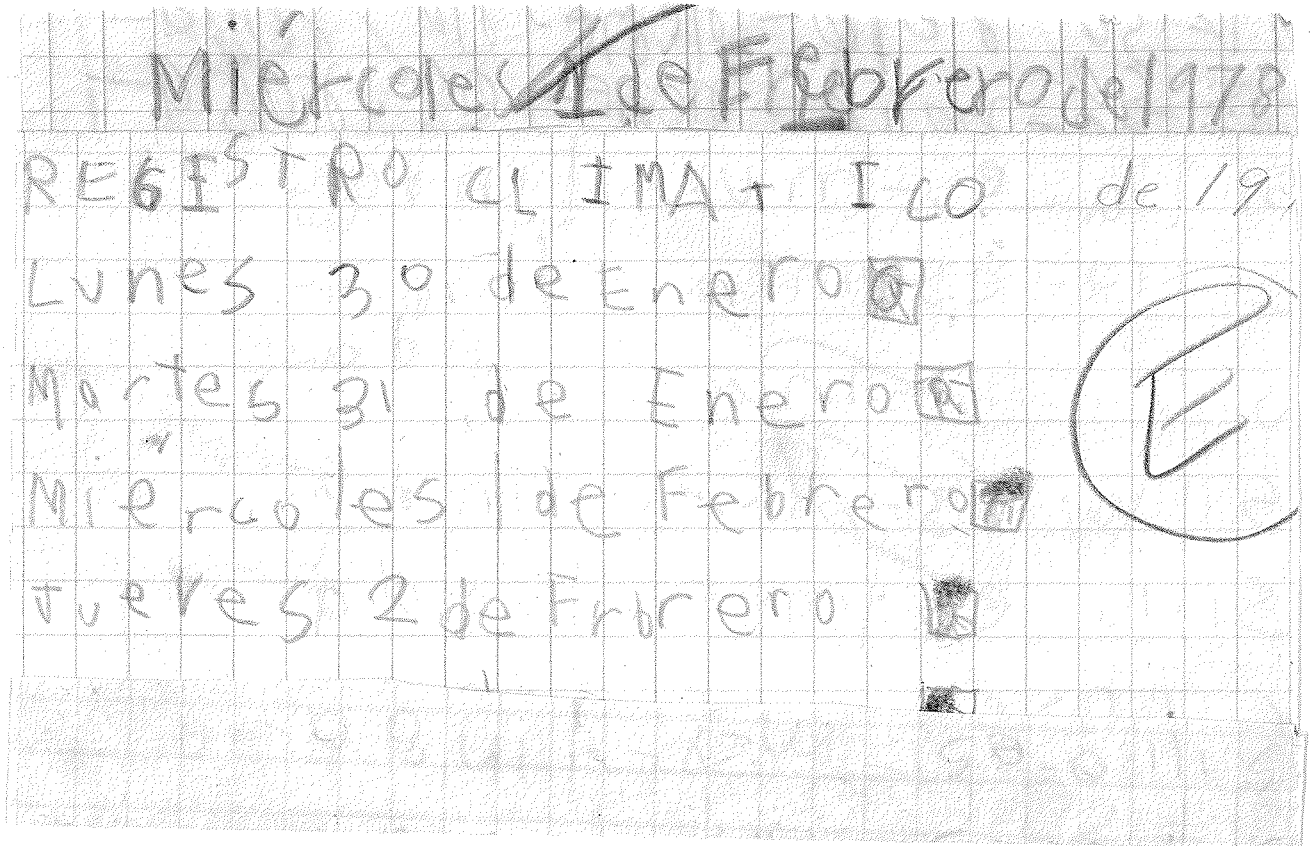 Miércoles 1 de Febrero de 1978
REGISTRO CLIMATICO de 19
Lunes 30 de Enero
Martes 31 de Enero
Miercoles 1 de Febrero
Jueves 2 de Frbrero
E